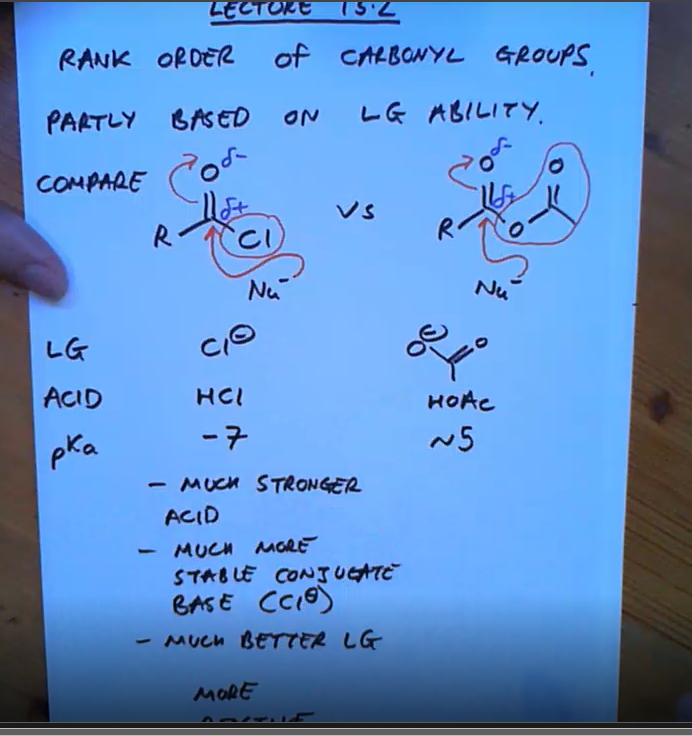 LECTURE 15.2
RANK ORDER of CARBONYL GROUPS.
PARTLY BASED ON LG ABILITY.
COMPARE
O δ- δ+ R Cl Nu⁻
VS
O δ- δ+ R O O Nu⁻
LG Cl⊖ O⊖ O
ACID HCl HOAc
pKa -7 ~5
- MUCH STRONGER
ACID
- MUCH MORE
STABLE CONJUGATE
BASE (Cl⊖)
- MUCH BETTER LG
MORE